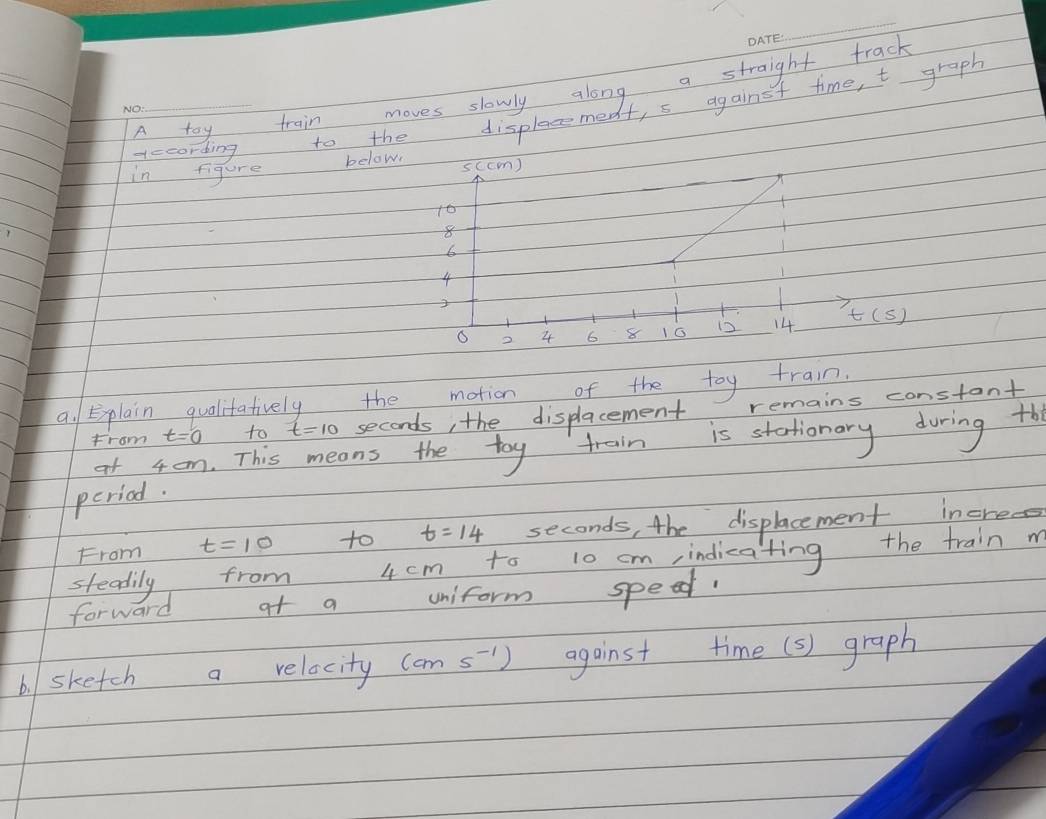 DATE:
NO:
A toy train moves slowly along a straight track
according to the displacement, s against time, t graph
in figure below.
s(cm)
10
8
6
4
2
0 2 4 6 8 10 12 14 t(s)
a. Explain qualitatively the motion of the toy train.
From t=0 to t=10 seconds, the displacement remains constant
at 4 cm. This means the toy train is stationary during
period.
From t=10 to t=14 seconds, the displacement
steadily from 4cm to 10 cm, indicating the train m
forward at a uniform speed.
b. sketch a velocity (cm s⁻¹) against time (s) graph